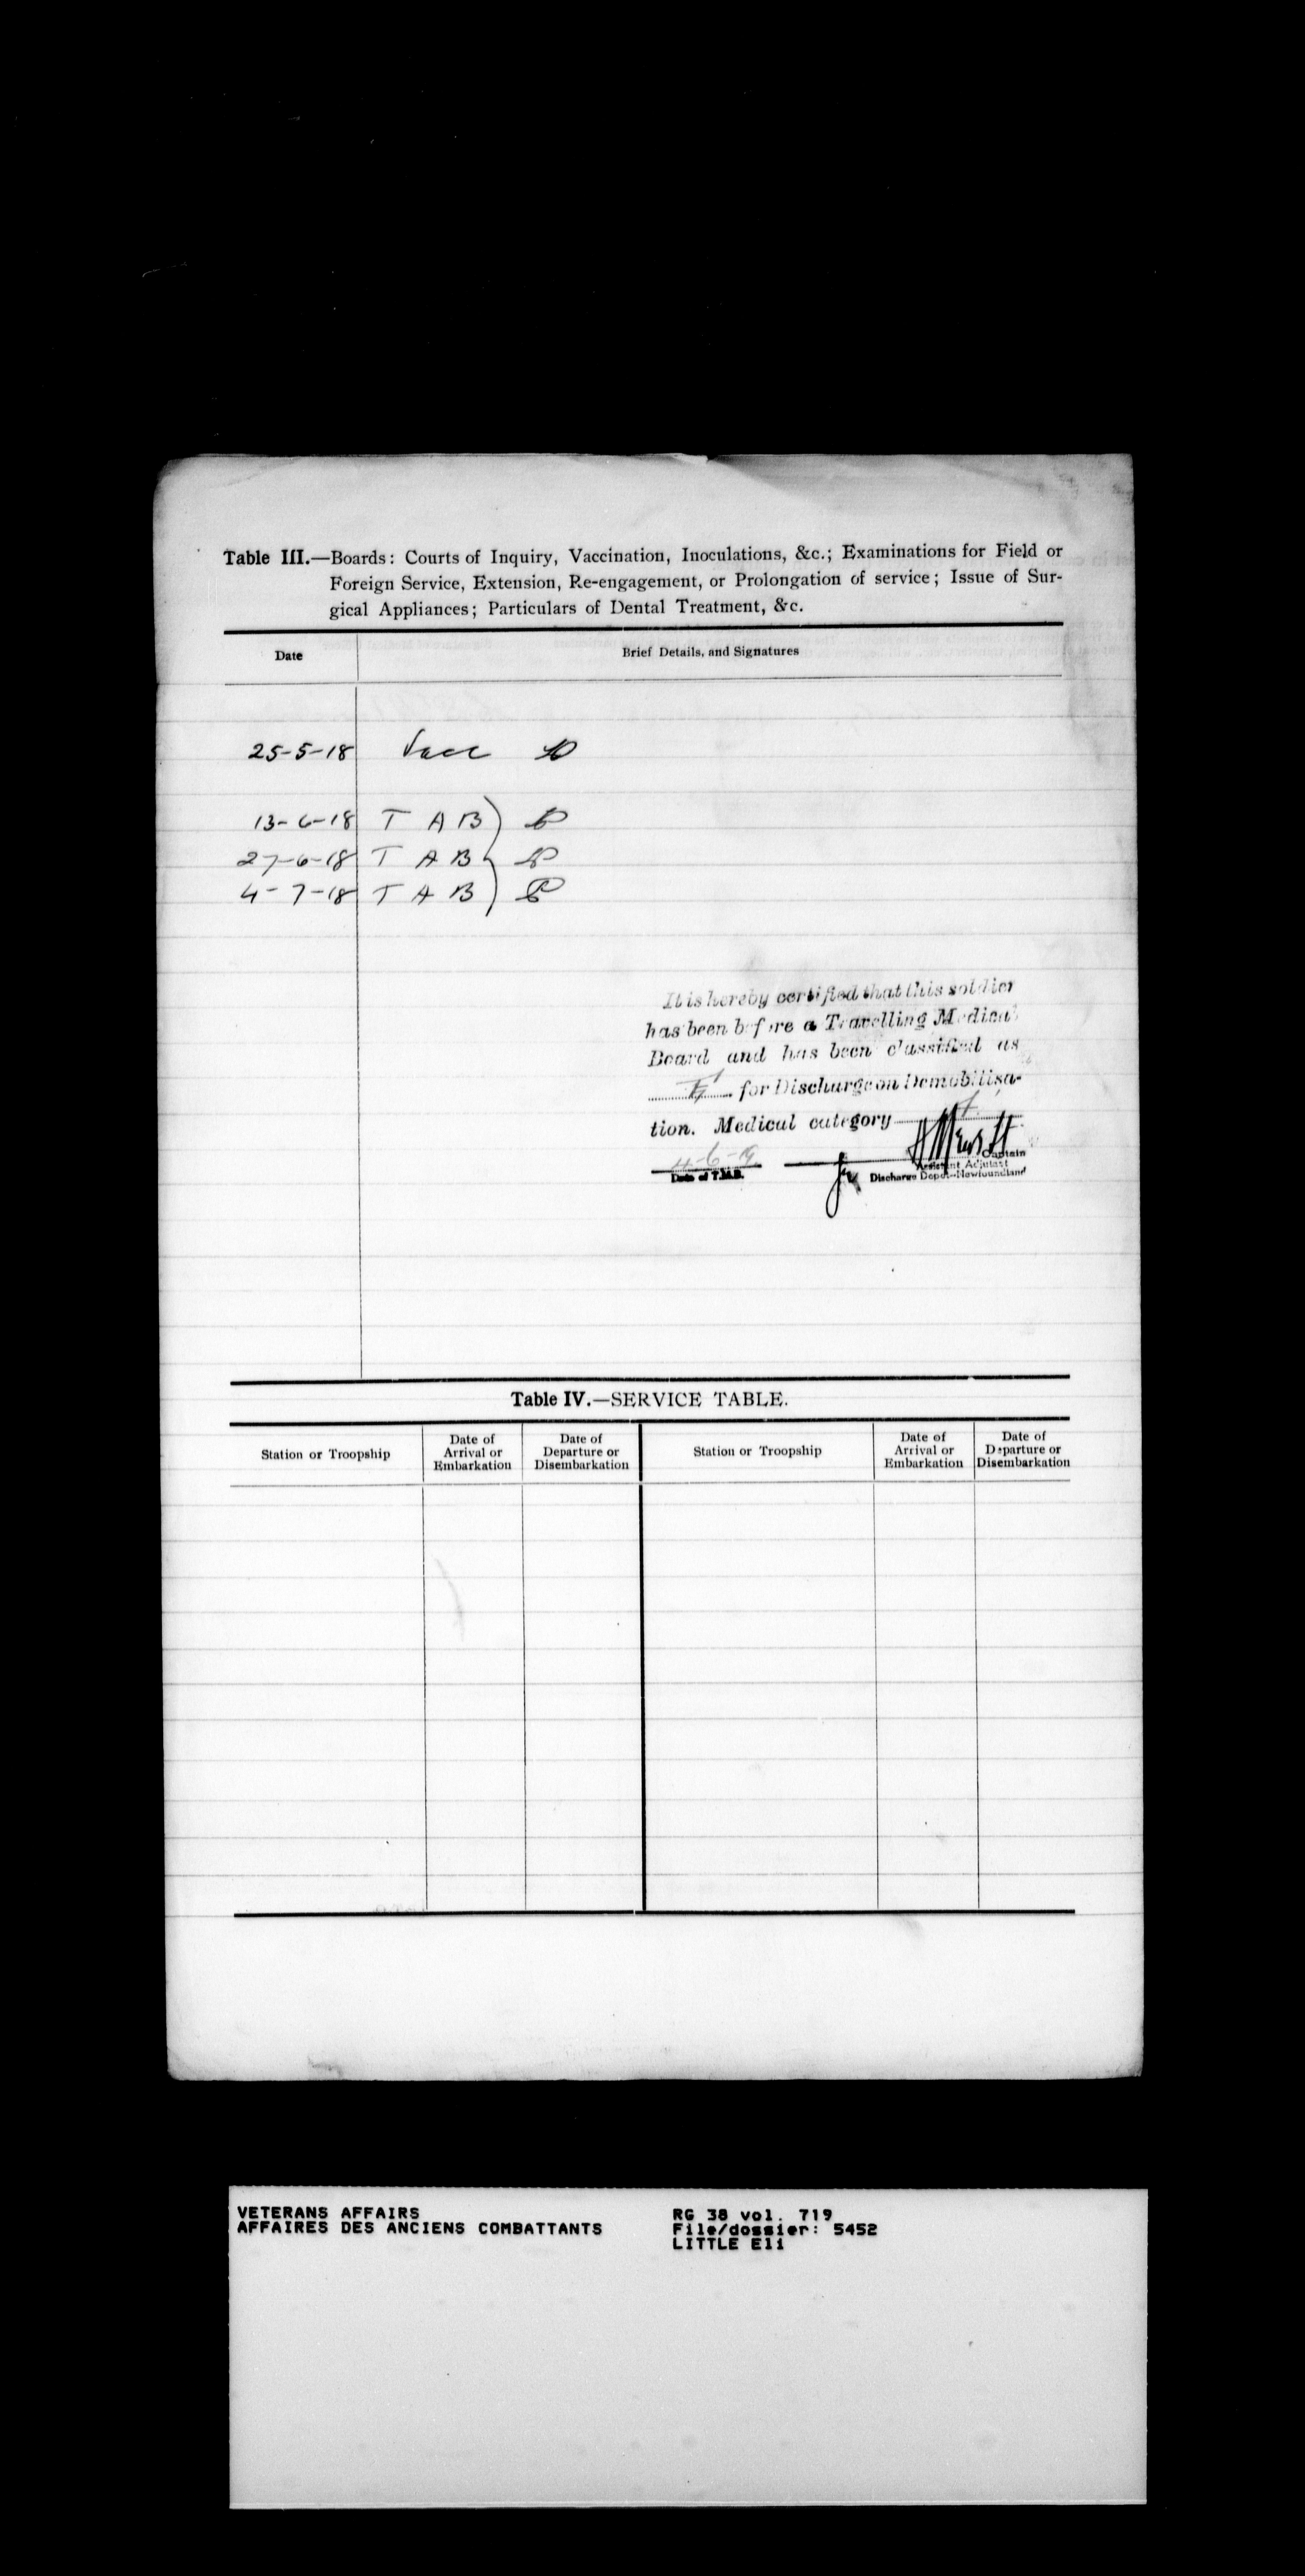 Table III.—Boards: Courts of Inquiry, Vaccination, Inoculations, &c.; Examinations for Field or
Foreign Service, Extension, Re-engagement, or Prolongation of service; Issue of Sur-
gical Appliances; Particulars of Dental Treatment, &c.
Date Brief Details, and Signatures
25-5-18 Vacc
13-6-18 T A B
27-6-18 T A B
4-7-18 T A B
It is hereby certified that this soldier
has been before a Travelling Medical
Board and has been classified as
for Discharge on Demobilisa-
tion. Medical category
4-6-19 Captain
Assistant Adjutant
Date of T.M.B. Discharge Depot—Newfoundland
Table IV.—SERVICE TABLE.
Station or Troopship Date of Arrival or Embarkation Date of Departure or Disembarkation Station or Troopship Date of Arrival or Embarkation Date of Departure or Disembarkation
VETERANS AFFAIRS RG 38 vol. 719
AFFAIRES DES ANCIENS COMBATTANTS File/dossier: 5452
LITTLE Eli